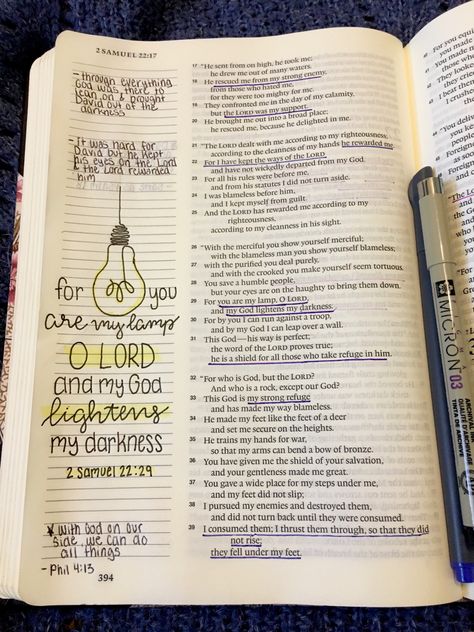 2 SAMUEL 22:17
- through everything
God was there to
lean on & brought
David out of the
darkness
It was hard for
David but he kept
his eyes on the Lord
& the Lord rewarded
him
for you
are my lamp
O LORD
and my God
lightens
my darkness
2 Samuel 22:29
* with God on our
side, we can do
all things
- Phil 4:13
394
17 "He sent from on high, he took me;
he drew me out of many waters.
18 He rescued me from my strong enemy,
from those who hated me,
for they were too mighty for me.
19 They confronted me in the day of my calamity,
but the LORD was my support.
20 He brought me out into a broad place;
he rescued me, because he delighted in me.
21 "The LORD dealt with me according to my righteousness;
according to the cleanness of my hands he rewarded me.
22 For I have kept the ways of the LORD
and have not wickedly departed from my God.
23 For all his rules were before me,
and from his statutes I did not turn aside.
24 I was blameless before him,
and I kept myself from guilt.
25 And the LORD has rewarded me according to my
righteousness,
according to my cleanness in his sight.
26 "With the merciful you show yourself merciful;
with the blameless man you show yourself blameless;
27 with the purified you deal purely,
and with the crooked you make yourself seem tortuous.
28 You save a humble people,
but your eyes are on the haughty to bring them down.
29 For you are my lamp, O LORD,
and my God lightens my darkness.
30 For by you I can run against a troop,
and by my God I can leap over a wall.
31 This God—his way is perfect;
the word of the LORD proves true;
he is a shield for all those who take refuge in him.
32 "For who is God, but the LORD?
And who is a rock, except our God?
33 This God is my strong refuge
and has made my way blameless.
34 He made my feet like the feet of a deer
and set me secure on the heights.
35 He trains my hands for war,
so that my arms can bend a bow of bronze.
36 You have given me the shield of your salvation,
and your gentleness made me great.
37 You gave a wide place for my steps under me,
and my feet did not slip;
38 I pursued my enemies and destroyed them,
and did not turn back until they were consumed.
39 I consumed them; I thrust them through, so that they did
not rise;
they fell under my feet.
MICRON 03